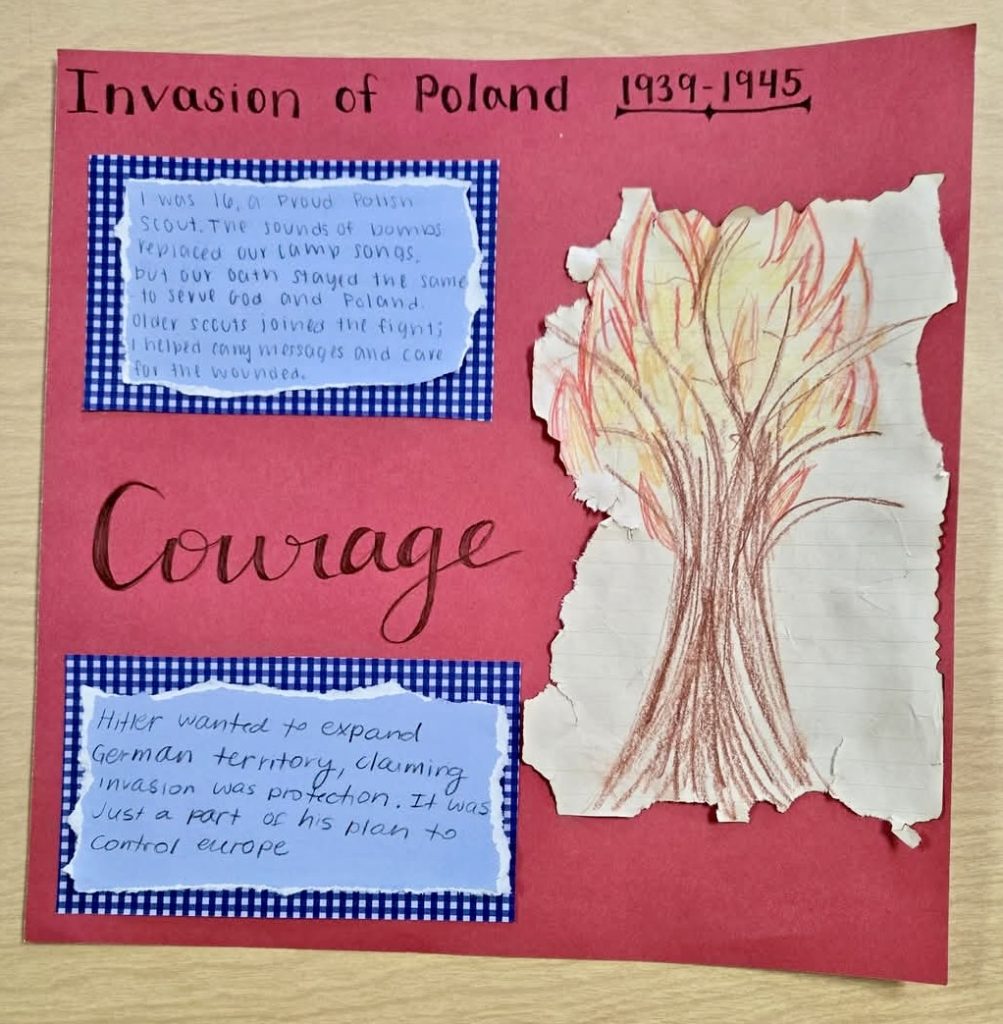 Invasion of Poland 1939-1945
I was 16, a proud Polish
Scout. The sounds of bombs
replaced our camp songs,
but our oath stayed the same
to serve God and Poland.
Older scouts joined the fight;
I helped carry messages and care
for the wounded.
Courage
Hitler wanted to expand
German territory, claiming
invasion was protection. It was
Just a part of his plan to
control europe